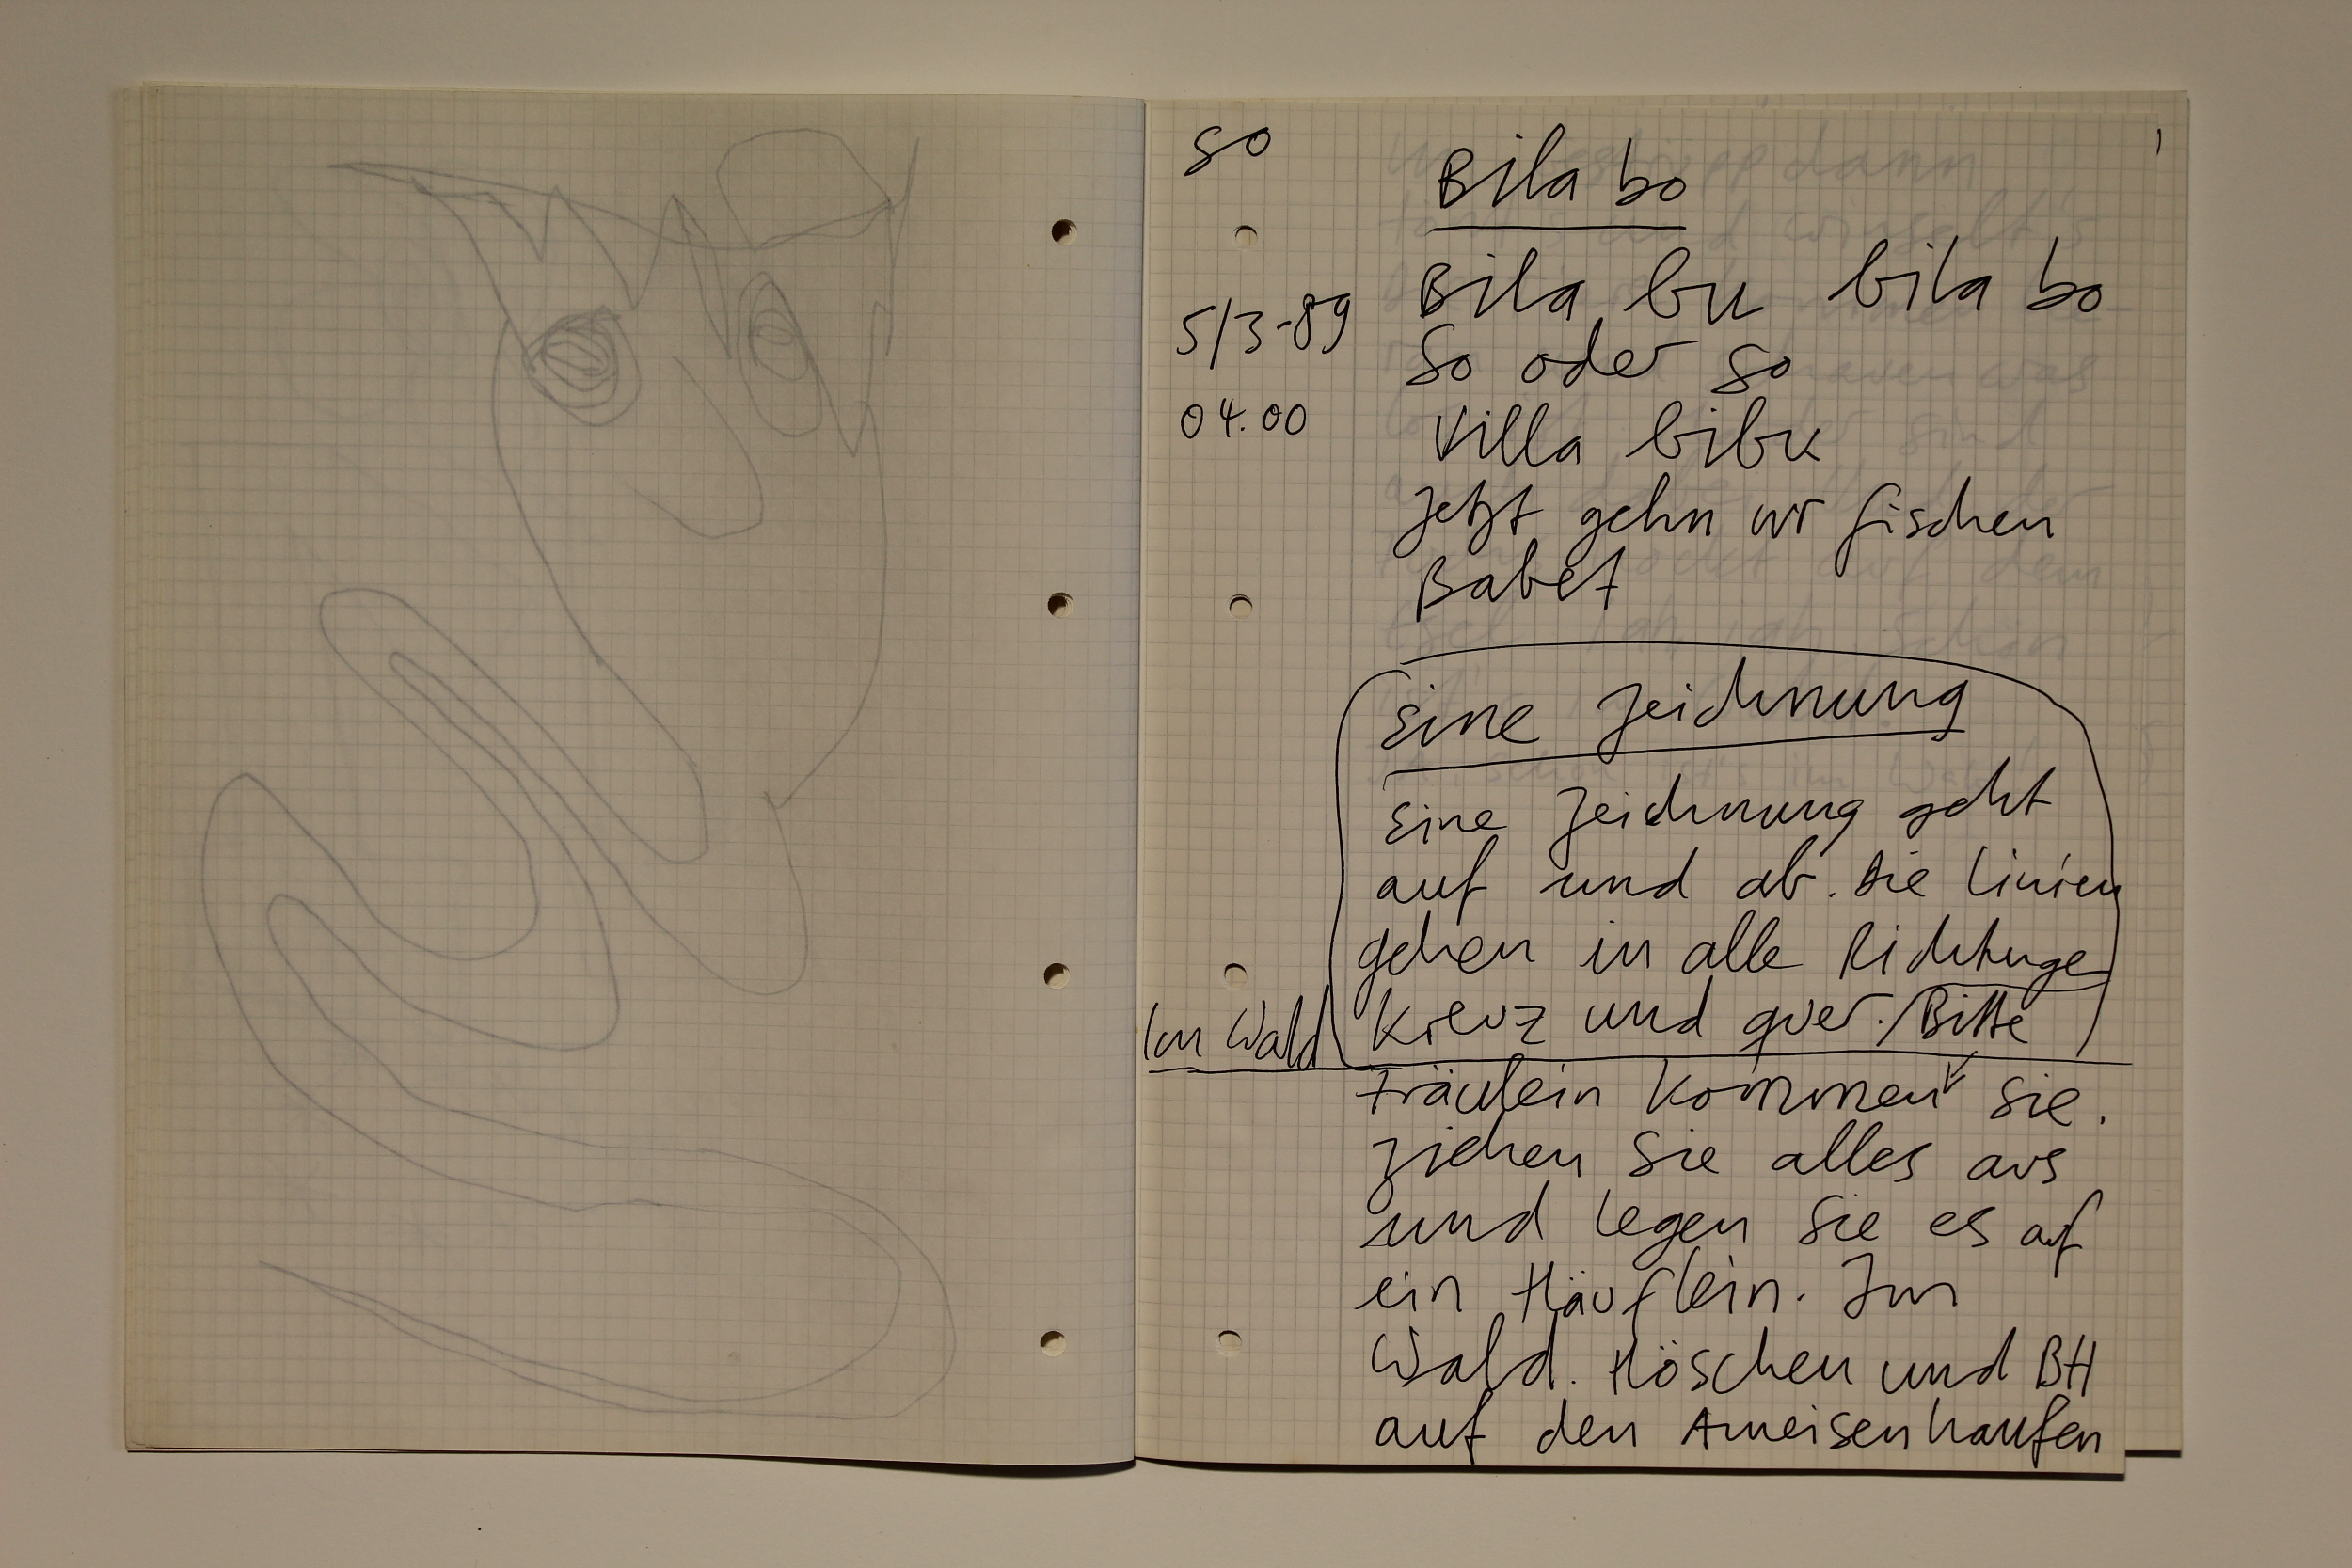 so
5/3-89
04.00
Bila bo
Bila bu bila bo
So oder so
Villa bibu
Jetzt gehn wr fischen
Babet
Eine Zeichnung
Eine Zeichnung geht
auf und ab. Die Linien
gehen in alle Richtunge
Kreuz und quer. / Bitte
Im Wald
Fräulein kommen Sie.
Ziehen Sie alles aus
und legen Sie es auf
ein Häuflein. Im
Wald. Höschen und BH
auf den Ameisenhaufen